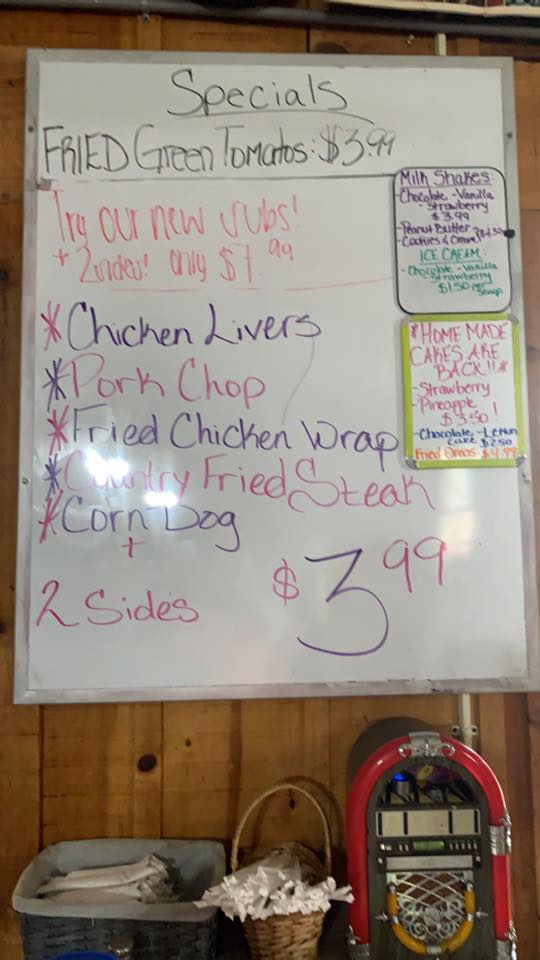 Specials
FRIED Green Tomatos: $3.99
Try our new subs!
+ 2 sides! only $7.99
*Chicken Livers
*Pork Chop
*Fried Chicken Wrap
*Country Fried Steak
*Corn Dog
+
2 Sides $3.99
Milk Shakes:
-Chocolate -Vanilla
-Strawberry
$3.99
-Peanut Butter
-Cookies & Cream
ICE CREAM:
-Chocolate -Vanilla
-Strawberry
$1.50 per
scoop
*HOME MADE
CAKES ARE
BACK!!*
-Strawberry
-Pineapple !
$3.50
-Chocolate -Lemon
cake $2.50
Fried Oreos $4.99